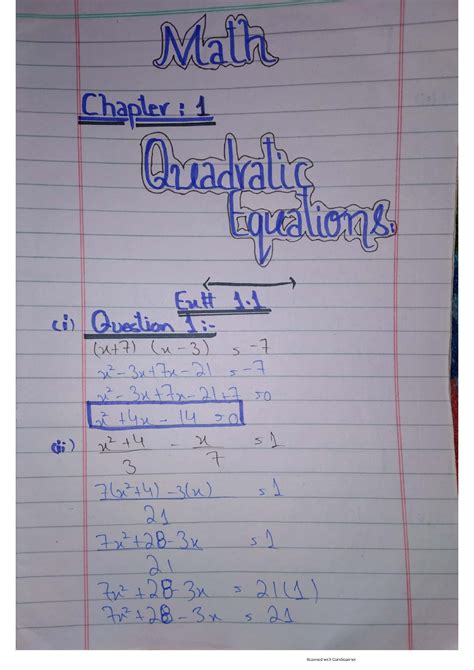 Math
Chapter : 1
Quadratic
Equations.
Ex# 1.1
(i) Question 1:-
(x+7) (x-3) = -7
x²-3x+7x-21 = -7
x²-3x+7x-21+7 =0
x²+4x-14 =0
(ii) x²+4/3 - x/7 = 1
7(x²+4)-3(x)/21 = 1
7x²+28-3x/21 = 1
7x²+28-3x = 21(1)
7x²+28-3x = 21
Scanned with CamScanner